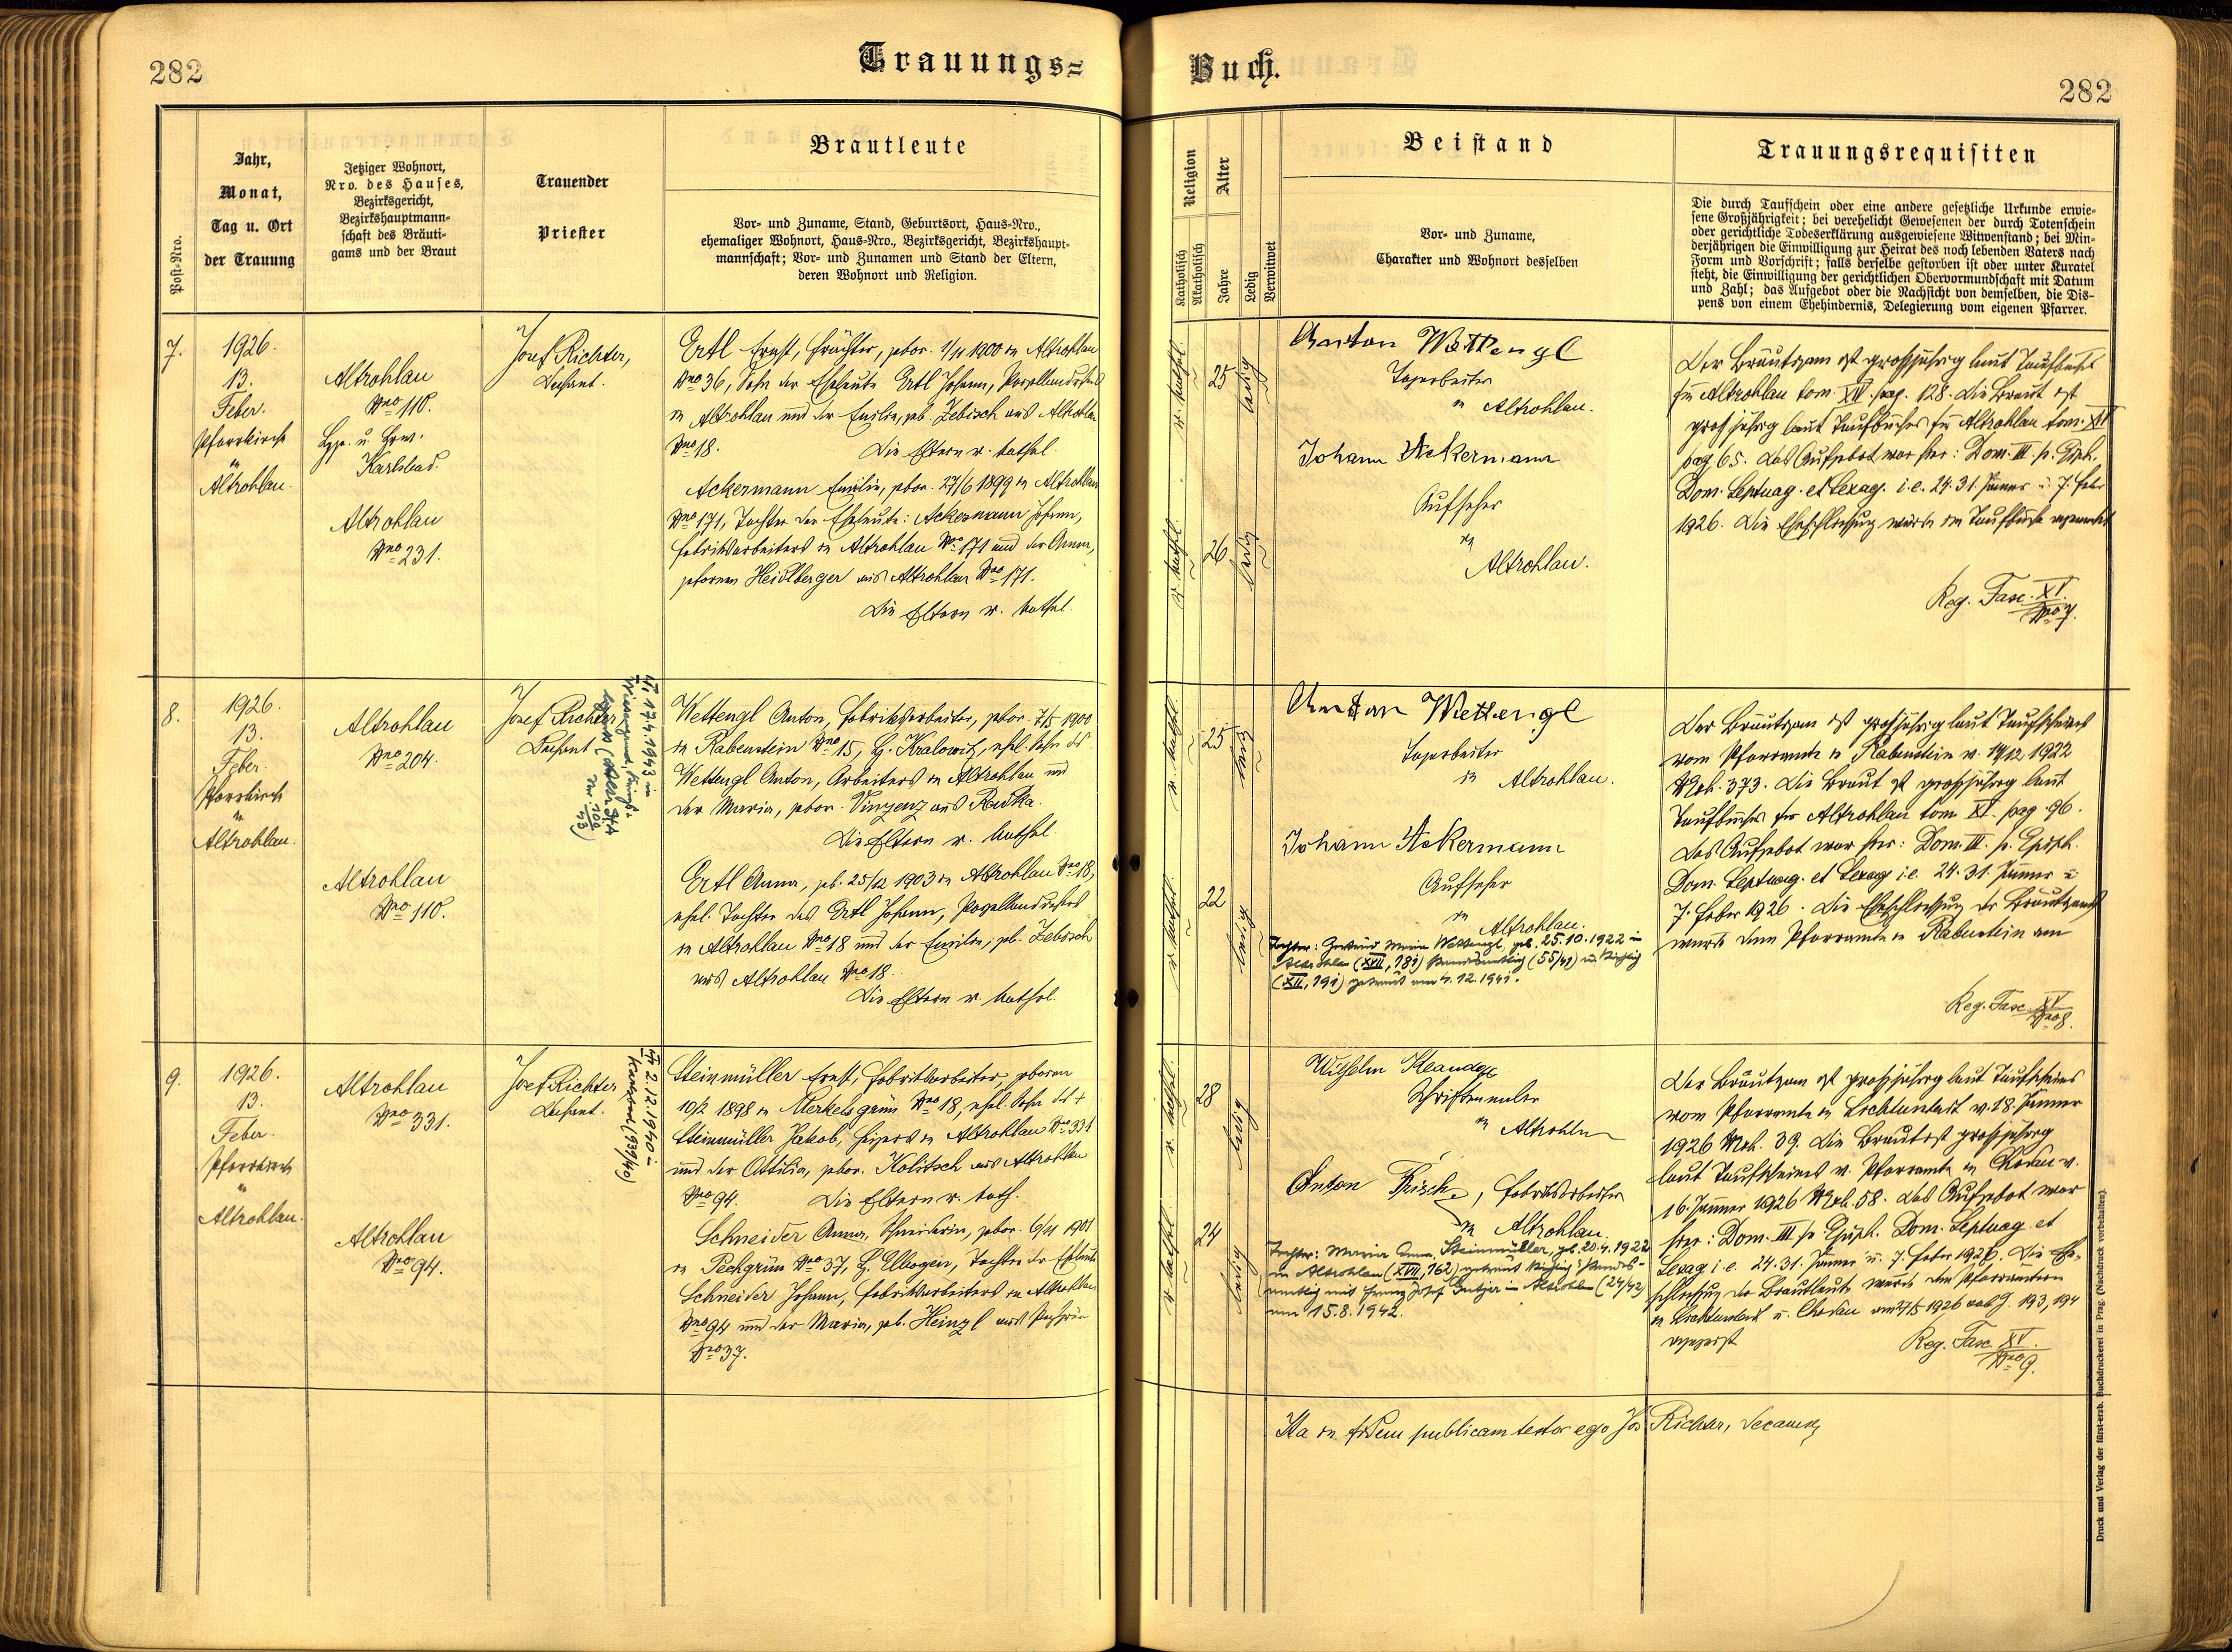 282
Trauungs=
Buch.
282
Post-Nro.
Jahr,
Monat,
Tag u. Ort
der Trauung
Jetziger Wohnort,
Nro. des Hauses,
Bezirksgericht,
Bezirkshauptmann-
schaft des Bräuti-
gams und der Braut
Trauender
Priester
Brautleute
Vor- und Zuname, Stand, Geburtsort, Haus-Nro.,
ehemaliger Wohnort, Haus-Nro., Bezirksgericht, Bezirkshaupt-
mannschaft; Vor- und Zunamen und Stand der Eltern,
deren Wohnort und Religion.
Religion
Katholisch
Akatholisch
Alter
Jahre
Ledig
Verwitwet
Beistand
Vor- und Zuname,
Charakter und Wohnort desselben
Trauungsrequisiten
Die durch Taufschein oder eine andere gesetzliche Urkunde erwie-
sene Großjährigkeit; bei verehelicht Gewesenen der durch Totenschein
oder gerichtliche Todeserklärung ausgewiesene Witwenstand; bei Min-
derjährigen die Einwilligung zur Heirat des noch lebenden Vaters nach
Form und Vorschrift; falls derselbe gestorben ist oder unter Kuratel
steht, die Einwilligung der gerichtlichen Obervormundschaft mit Datum
und Zahl; das Aufgebot oder die Nachsicht von demselben, die Dis-
pens von einem Ehehindernis, Delegierung vom eigenen Pfarrer.
7.
1926.
13.
Feber.
Pfarrkirche
in
Altrohlau.
Altrohlau
Nro 110.
Karlsbad.
Altrohlau
Nro 231.
Josef Richter,
Dechant.
Ertl Ernst, gebor. 1/11 1900 in Altrohlau
Nro 36, Sohn der Eheleute Ertl Johann, Porzellandrehers
in Altrohlau und der Emilie, geb. Zebisch aus Altrohlau
Nro 18. Die Eltern r. kathol.
Ackermann Emilie, gebor. 27/6 1899 in Altrohlau
Nro 171, Tochter der Eheleute: Ackermann Johann,
Fabriksarbeiters in Altrohlau Nro 171 und der Anna,
geborenen Heidlberger aus Altrohlau Nro 171.
Die Eltern r. kathol.
r. kathol.
25
ledig
r. kathol.
26
ledig
Anton Wettengl
in Altrohlau.
Johann Ackermann
Aufseher
in
Altrohlau.
Der Bräutigam ist großjährig laut Taufbuches
für Altrohlau tom. XIV. pag. 128. Die Braut ist
großjährig laut Taufbuches für Altrohlau tom. XIV
pag 65. Das Aufgebot war hier: Dom. III. p. Epiph.
Dom. Septuag. et Sexag. i.e. 24. 31. Jänner u. 7. Feber
1926. Die Eheschließung wurde im Taufbuche angemerkt
Reg. Fasc. XV.
Nro 7.
8.
1926.
13.
Feber.
Pfarrkirche
in
Altrohlau.
Altrohlau
Nro 204.
Altrohlau
Nro 110.
Josef Richter
Dechant
17.4.1943 in
Wettengl Anton, Fabriksarbeiter, gebor. 7/5 1900
in Rabenstein Nro 15, B. Kralowitz, ehel. Sohn des
Wettengl Anton, Arbeiters in Altrohlau und
der Maria, gebor. Vinzenz aus Rudka.
Die Eltern r. kathol.
Ertl Anna, geb. 25/12 1903 in Altrohlau Nro 18,
ehel. Tochter des Ertl Johann, Porzellandrehers
in Altrohlau Nro 18 und der Emilie, geb. Zebisch
aus Altrohlau Nro 18.
Die Eltern r. kathol.
r. kathol.
25
ledig
r. kathol.
22
ledig
Anton Wettengl
in Altrohlau.
Johann Ackermann
Aufseher
in
Altrohlau.
Tochter: Gertrud Maria Wettengl, geb. 25.10.1922 in
Altrohlau (XVII, 181) standesamtlich (55/41) u. kirchlich
(XII, 191) getraut am 4.12.1941.
Der Bräutigam ist großjährig laut Taufscheines
vom Pfarramte in Rabenstein v. 14/12 1922
Mtrk. 373. Die Braut ist großjährig laut
Taufbuches für Altrohlau tom XV. pag. 96.
Das Aufgebot war hier: Dom. III. p. Epiph.
Dom. Septuag. et Sexag i.e. 24. 31. Jänner u.
7. Feber 1926. Die Eheschließung des Bräutigams
wurde dem Pfarramte in Rabenstein am
Reg. Fasc. XV
Nro 8.
9.
1926.
13.
Feber.
Pfarrkirche
in
Altrohlau.
Altrohlau
Nro 331.
Altrohlau
Nro 94.
Josef Richter
Dechant.
2.12.1940 in
Karlsbad (939/40)
Steinmüller Ernst, Fabriksarbeiter, geboren
10/2 1898 in Merkelsgrün Nro 18, ehel. Sohn des +
Steinmüller Jakob, Heizers in Altrohlau Nro 331
und der Ottilia, gebor. Kolitsch aus Altrohlau
Nro 94. Die Eltern r. kath.
Schneider Anna, gebor. 6/11 1901
in Pechgrün Nro 37, B. Elbogen, Tochter der Eheleute
Schneider Johann, Fabriksarbeiters in Altrohlau
Nro 94 und der Maria, geb. Heinzl aus Pechgrün
Nro 37.
r. kathol.
28
ledig
r. kathol.
24
ledig
Wilhelm
Schriftenmaler
in Altrohlau
Anton Frisch, Fabriksarbeiter
in Altrohlau.
Tochter: Maria Anna Steinmüller, geb. 20.4.1922
in Altrohlau (XVII, 162) getraut kirchlich u. standes-
amtlich mit Franz Josef in Altrohlau (24/42)
am 15.8.1942.
Der Bräutigam ist großjährig laut Taufscheines
vom Pfarramte in Lichtenstadt v. 18. Jänner
1926 Mtrk. 39. Die Braut ist großjährig
laut Taufscheines v. Pfarramte in Chodau v.
16. Jänner 1926 Mtrk. 58. Das Aufgebot war
hier: Dom. III. p. Epiph. Dom. Septuag. et
Sexag i.e. 24. 31. Jänner u. 7. Feber 1926. Die Ehe-
schließung der Brautleute wurde den Pfarrämtern
in Lichtenstadt u. Chodau am 1926 193, 194
angezeigt
Reg. Fasc. XV.
Nro 9.
Ita in fidem publicam testor ego Jos Richter, Decanus
Druck und Verlag der fürst-erzb. Buchdruckerei in Prag. (Nachdruck vorbehalten).